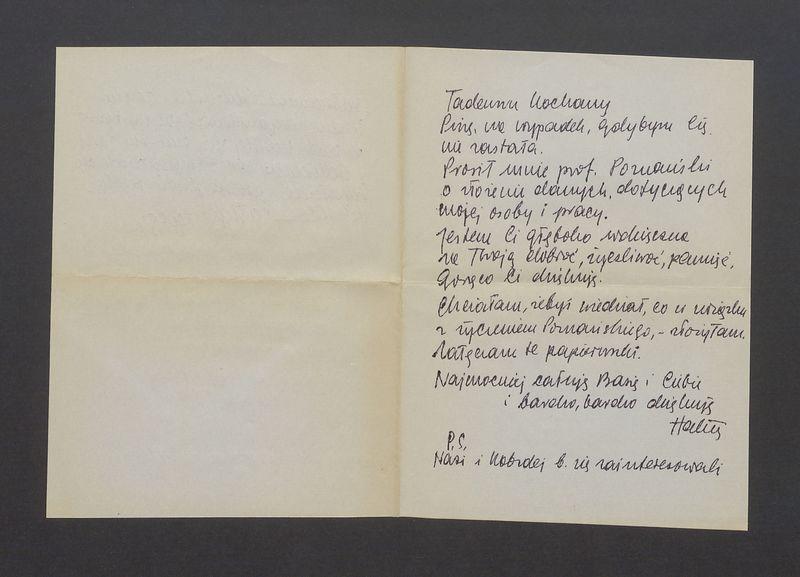 Tadeuszu Kochany
Piszę na wypadek, gdybym Cię
nie zastała.
Prosił mnie prof. Poznański
o złożenie danych, dotyczących
mojej osoby i pracy.
Jestem Ci głęboko wdzięczna
za Twoją dobroć, życzliwość, pamięć,
Gorąco Ci dziękuję.
Chciałam, żebyś wiedział, co w związku
z życzeniem Poznańskiego, - złożyłam.
Załączam te papierzyski.
Najmocniej całuję Basię i Ciebie
i bardzo, bardzo dziękuję
P.S.
i Kobzdej b. się zainteresowali